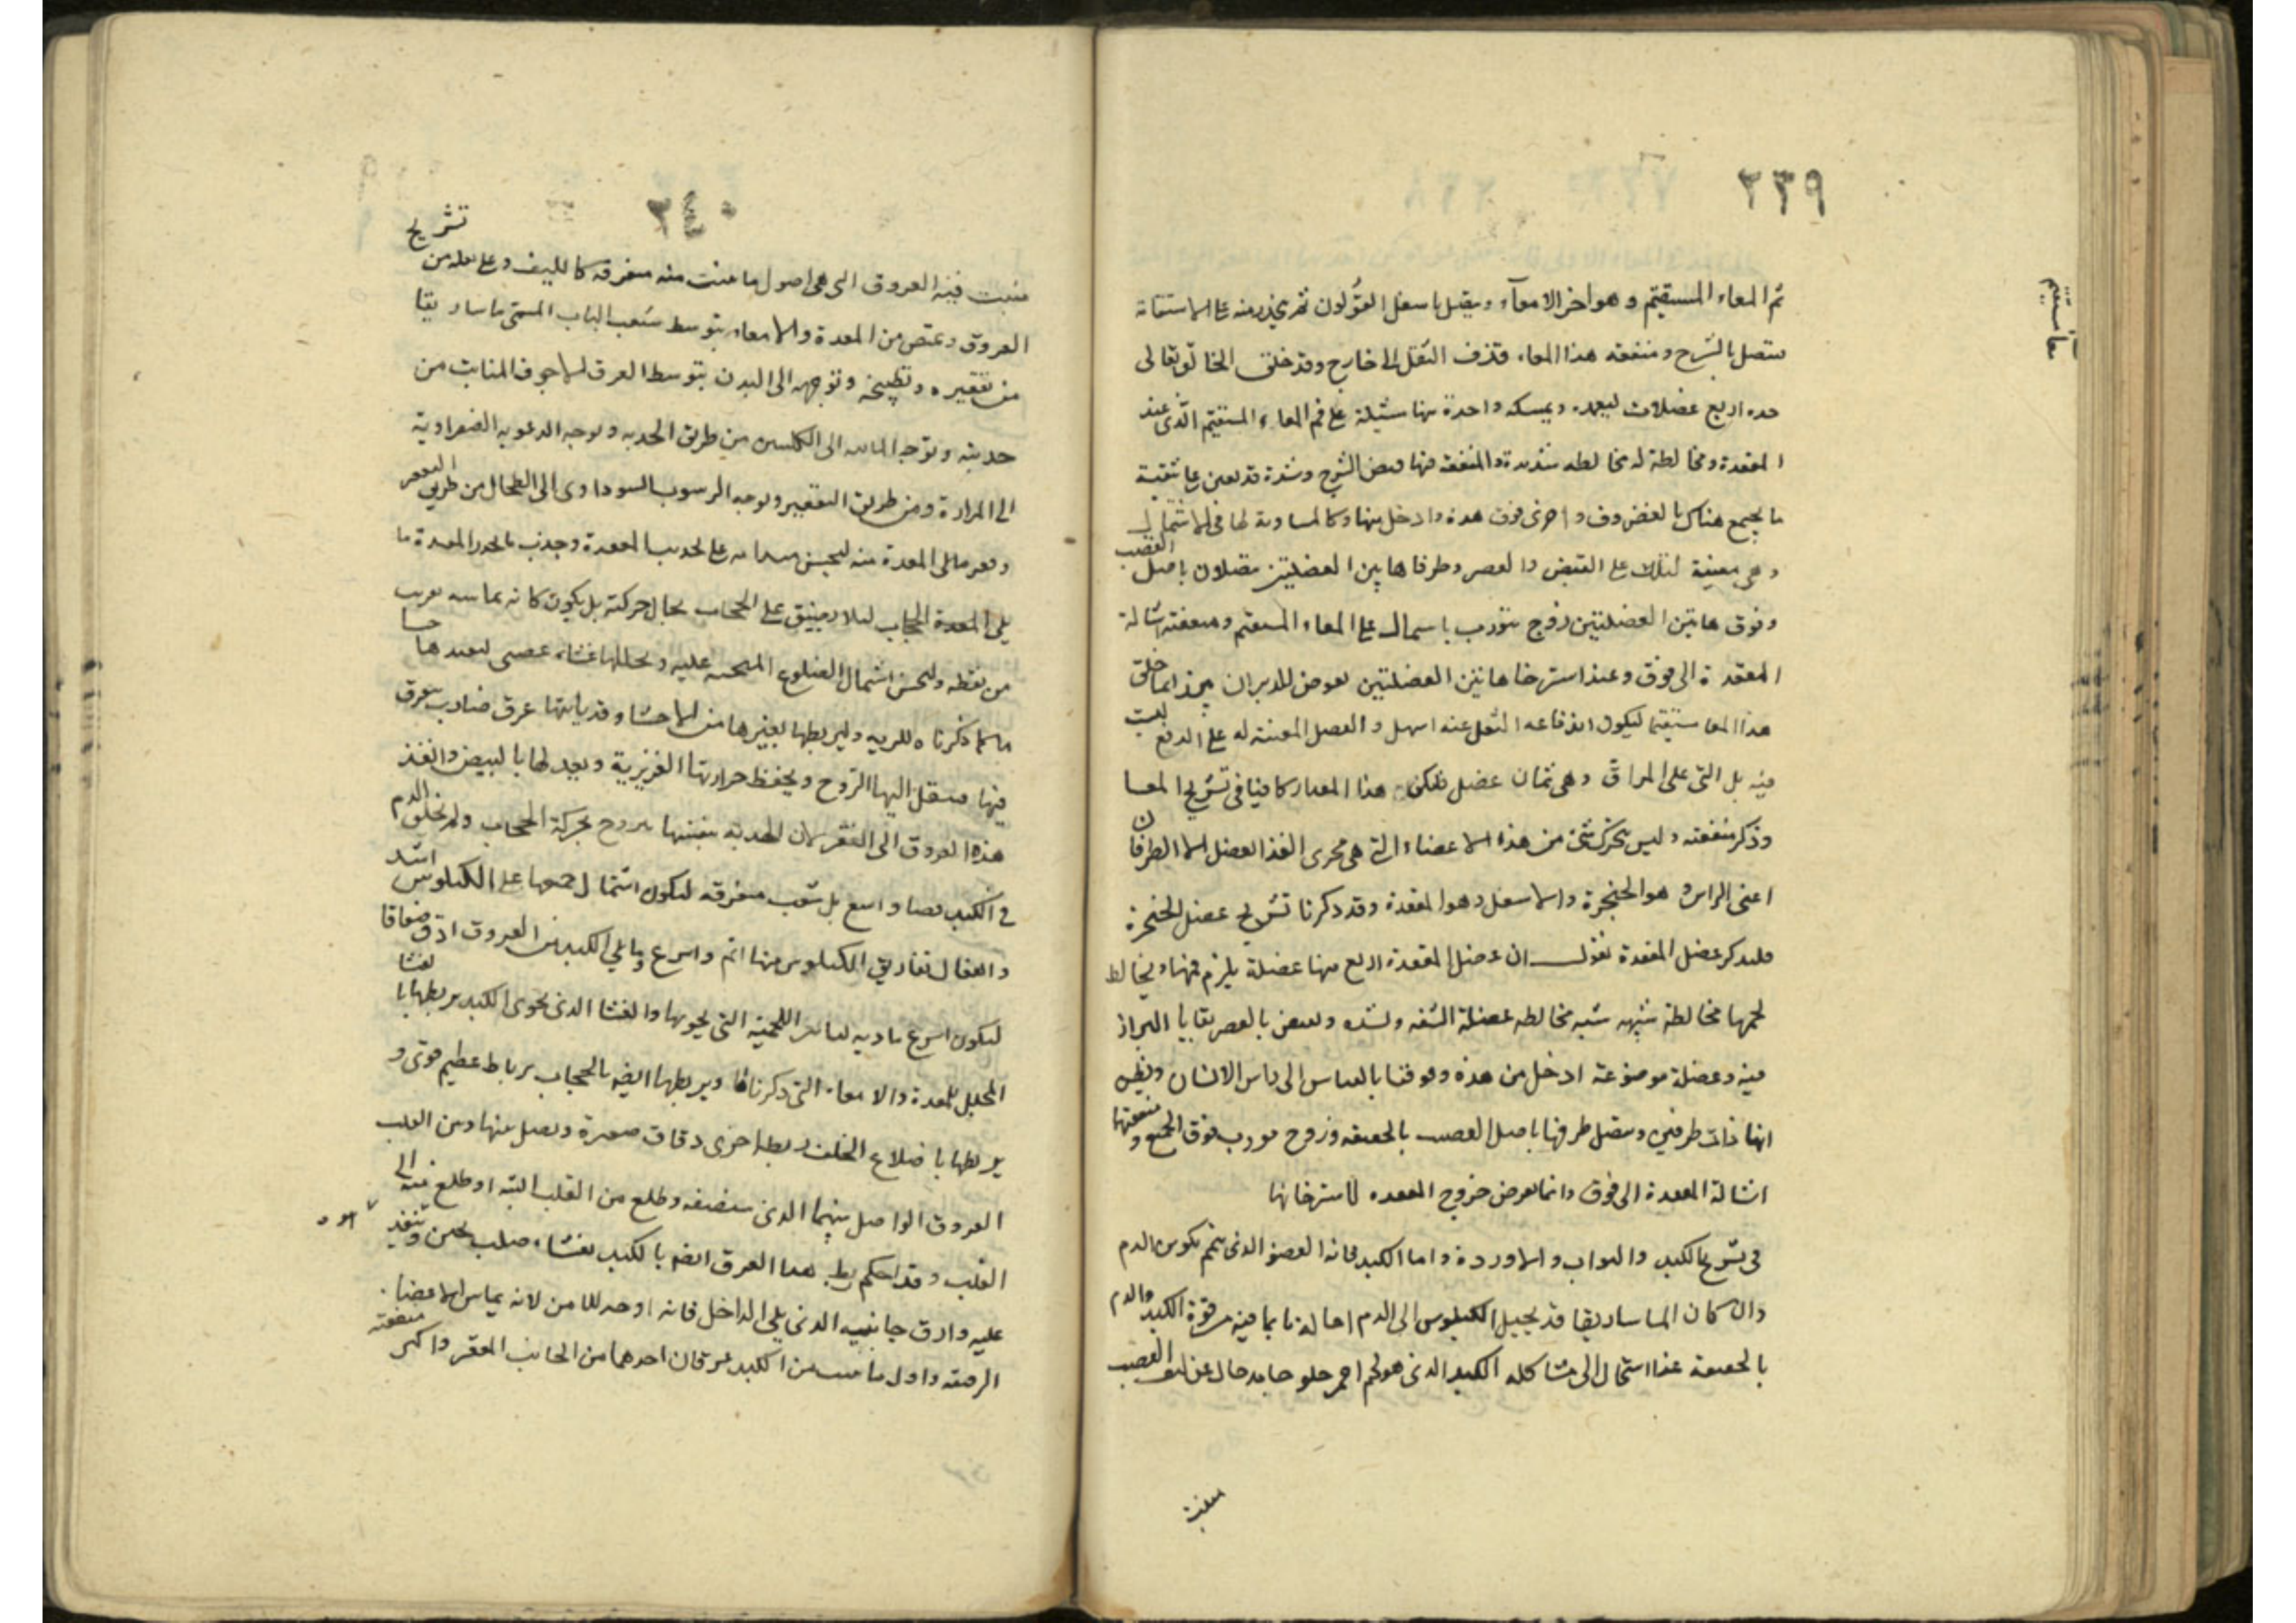 ٢٣٩
معا مستقيم
ثم المعاء المستقيم وهو اخر الامعآء ويتصل باسفل القولون ثم ينحدر منه على الاستقامة
متصل بالشرج ومنفعة هذا المعاء قذف الثقل الى خارج وقد خلق الخالق تعالى
اربع عضلات ويمسكه واحدة منها على فم المعاء المستقيم الذى عند
المقعدة ومخالطة له مخالطه شديدة والمنفعة منها قبض الشرج وشدة
ما يجمع هناك بالغضروف واخرى فوق هذه وادخل منها وكالمساوية لها فى الاشتمال
وهى معينة لتلك على القبض والعصر وطرفاها بين العضلتين متصلان باصل القضيب
وفوق هاتين العضلتين زوج متورب باشتمال على المعاء المستقيم ومنفعته اشالة
المقعدة الى فوق وعند استرخا هاتين العضلتين يعرض للدبر ان انما خلق
هذا المعا مستقيما ليكون اندفاعه الثقل عنه اسهل والعضل المعينة له على الدفع ليست
فيه بل التى على المراق وهى ثمان عضل فليكن هذا المقدار كافيا فى تشريح المعا
وذكر منفعته وليس يتحرك شئ من هذه الاعضاء التى هى مجرى الغذا بعضل الا الطرفان
اعنى الراس وهو الحنجرة والاسفل وهو المقعدة وقد ذكرنا تشريح عضل الحنجرة
فلنذكر عضل المقعدة نقول ان عضل المقعدة اربع منها عضلة يلزم فمها ويخالط
لحمها مخالطة شبيهه شبه مخالطه عضلة الشفه وتشده وتنفض بالعصر بقايا البراز
فيه وعضلة موضوعة ادخل من هذه وفوقها بالقياس الى راس الانسان ويظن
انها ذات طرفين ويتصل طرفها باصل القضيب بالحقيقه وزوج مورب فوق الجميع ومنفعتها
اشالة المقعدة الى فوق وانما يعرض خروج المقعده لاسترخائها
فى تشريح الكبد والبواب والاوردة واما الكبد فانه العضو الذى يتم تكون الدم
وان كان الماساريقا قد يحيل الكيلوس الى الدم احالة ما بما فيه من قوة الكبد والدم
بالحقيقه غذا استحال الى مشاكله الكبد الذى هو لحم احمر جلو جامد خال عن ليف العصب
منبث
٢٤٠
تشريح
منبث فيه العروق التى هى اصول ما ينبت منه متفرقه كالليف وعلى
العروق وتمتص من المعدة والامعاء بتوسط شعب الباب المسمى ماساريقا
من تقعيره وتطبخه وتوجهه الى البدن بتوسط العرق الاجوف النابت من
حدبته وتوجه المائيه الى الكليتين من طريق الحدبه وتوجه الرغويه الصفراوية
الى المرارة ومن طريق التقعير وتوجه الرسوب السوداوى الى الطحال من طريق التقعر
وقعر ما يلى المعدة منه ليحسن على تحديب المعدة وحدب ما
يلى الحجاب ليلا يضيق على الحجاب مجال حركته بل يكون كانه يماسه بقرب
من نقطه وليحسن اشتمال الضلوع المنحنيه عليه ويجللها غشاء عصبى ليفيدها حسا
ما كما ذكرناه للريه وليربطها بغيرها من الاحشا وقد ياتيها عرق ضارب يتفرق
فيها فينقل اليها الروح ويحفظ حرارتها الغريزية ويعدلها بالنبض وانفذ
هذه العروق الى القعر لان الحدبة بنفسها تروح بحركة الحجاب ولم يخلق للدم
فى الكبد فضا واسع بل شعب متفرقه ليكون اشتمال جميعها على الكيلوس اشد
وانفعال تفاريق الكيلوس منها اتم واسرع وما يلى الكبد من العروق ادق صفاقا
ليكون اسرع تاديه اللحميه التى يحويها والغشا الذى يحوى الكبد يربطها بالغشا
المجلل للمعدة والامعاء التى ذكرناها ويربطها ايضا بالحجاب برباط عظيم قوى و
يربطها باضلاع الخلف ربطه اخرى دقاق صغيرة ويصل بينها وبين القلب
العروق الواصل بينهما الذى ستضيفه وطلع من القلب اليه او طلع منه الى
القلب وقد احكم ربط هذا العرق ايضا بالكبد بغشاء صلب ثخين وتنفيذ
عليه وارق جانبيه الذى يلى الداخل فانه اوجد للامن لانه يماس الاعضاء
الرصنه واول ما ينبت من الكبد عرقان احدهما من الجانب المقعر واكثر منفعته